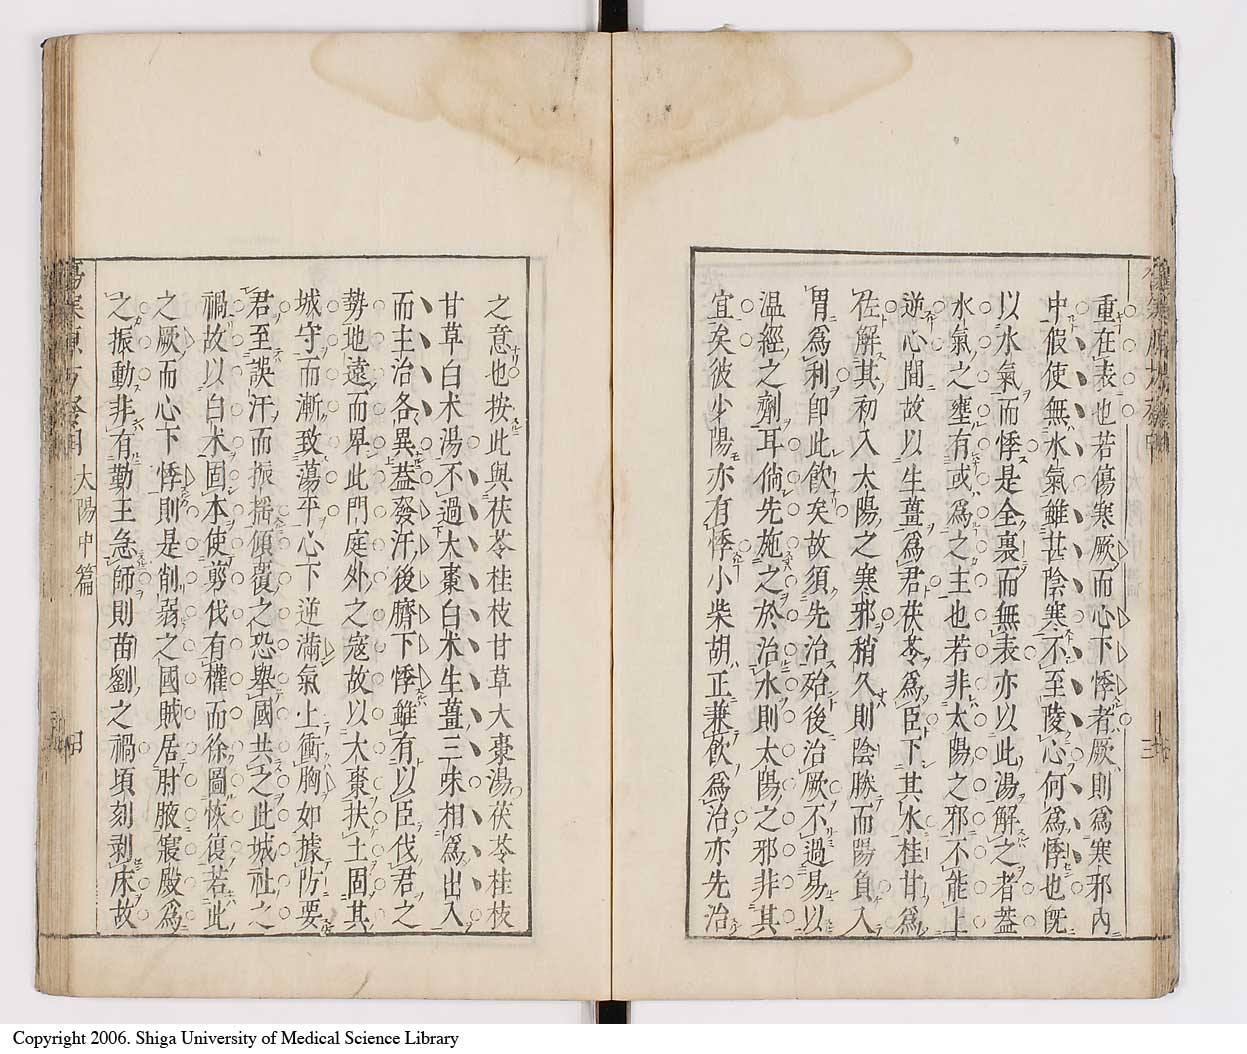 重在表也若傷寒厥而心下悸者厥則爲寒邪內
中假使無水氣雖甚陰寒不至陵心何爲悸也旣
以水氣而悸是全裏而無表亦以此湯解之者葢
水氣之壅有或爲之主也若非太陽之邪不能上
逆心間故以生薑爲君茯苓爲臣下其水桂甘爲
佐解其初入太陽之寒邪稍久則陰勝而陽負入
胃爲利卽此飲矣故須先治殆後治厥不過易以
溫經之劑耳倘先施之於治水則太陽之邪非其
宜矣彼少陽亦有悸小柴胡正兼飲爲治亦先治
之意也按此與茯苓桂枝甘草大棗湯茯苓桂枝
甘草白术湯不過大棗白术生薑三味相爲出入
而主治各異葢發汗後臍下悸雖有以臣伐君之
勢地遠而卑此門庭外之寇故以大棗扶土固其
城守而漸致蕩平心下逆滿氣上衝胸如據防要
君至誤汗而振搖傾覆之恐舉國共之此城社之
禍故以白术固本使剪伐有權而徐圖恢復若此
之厥而心下悸則是削弱之國賊居肘腋寢殿爲
之振動非有勤王急師則苗劉之禍頃刻剥床故
太陽中篇
Copyright 2006. Shiga University of Medical Science Library